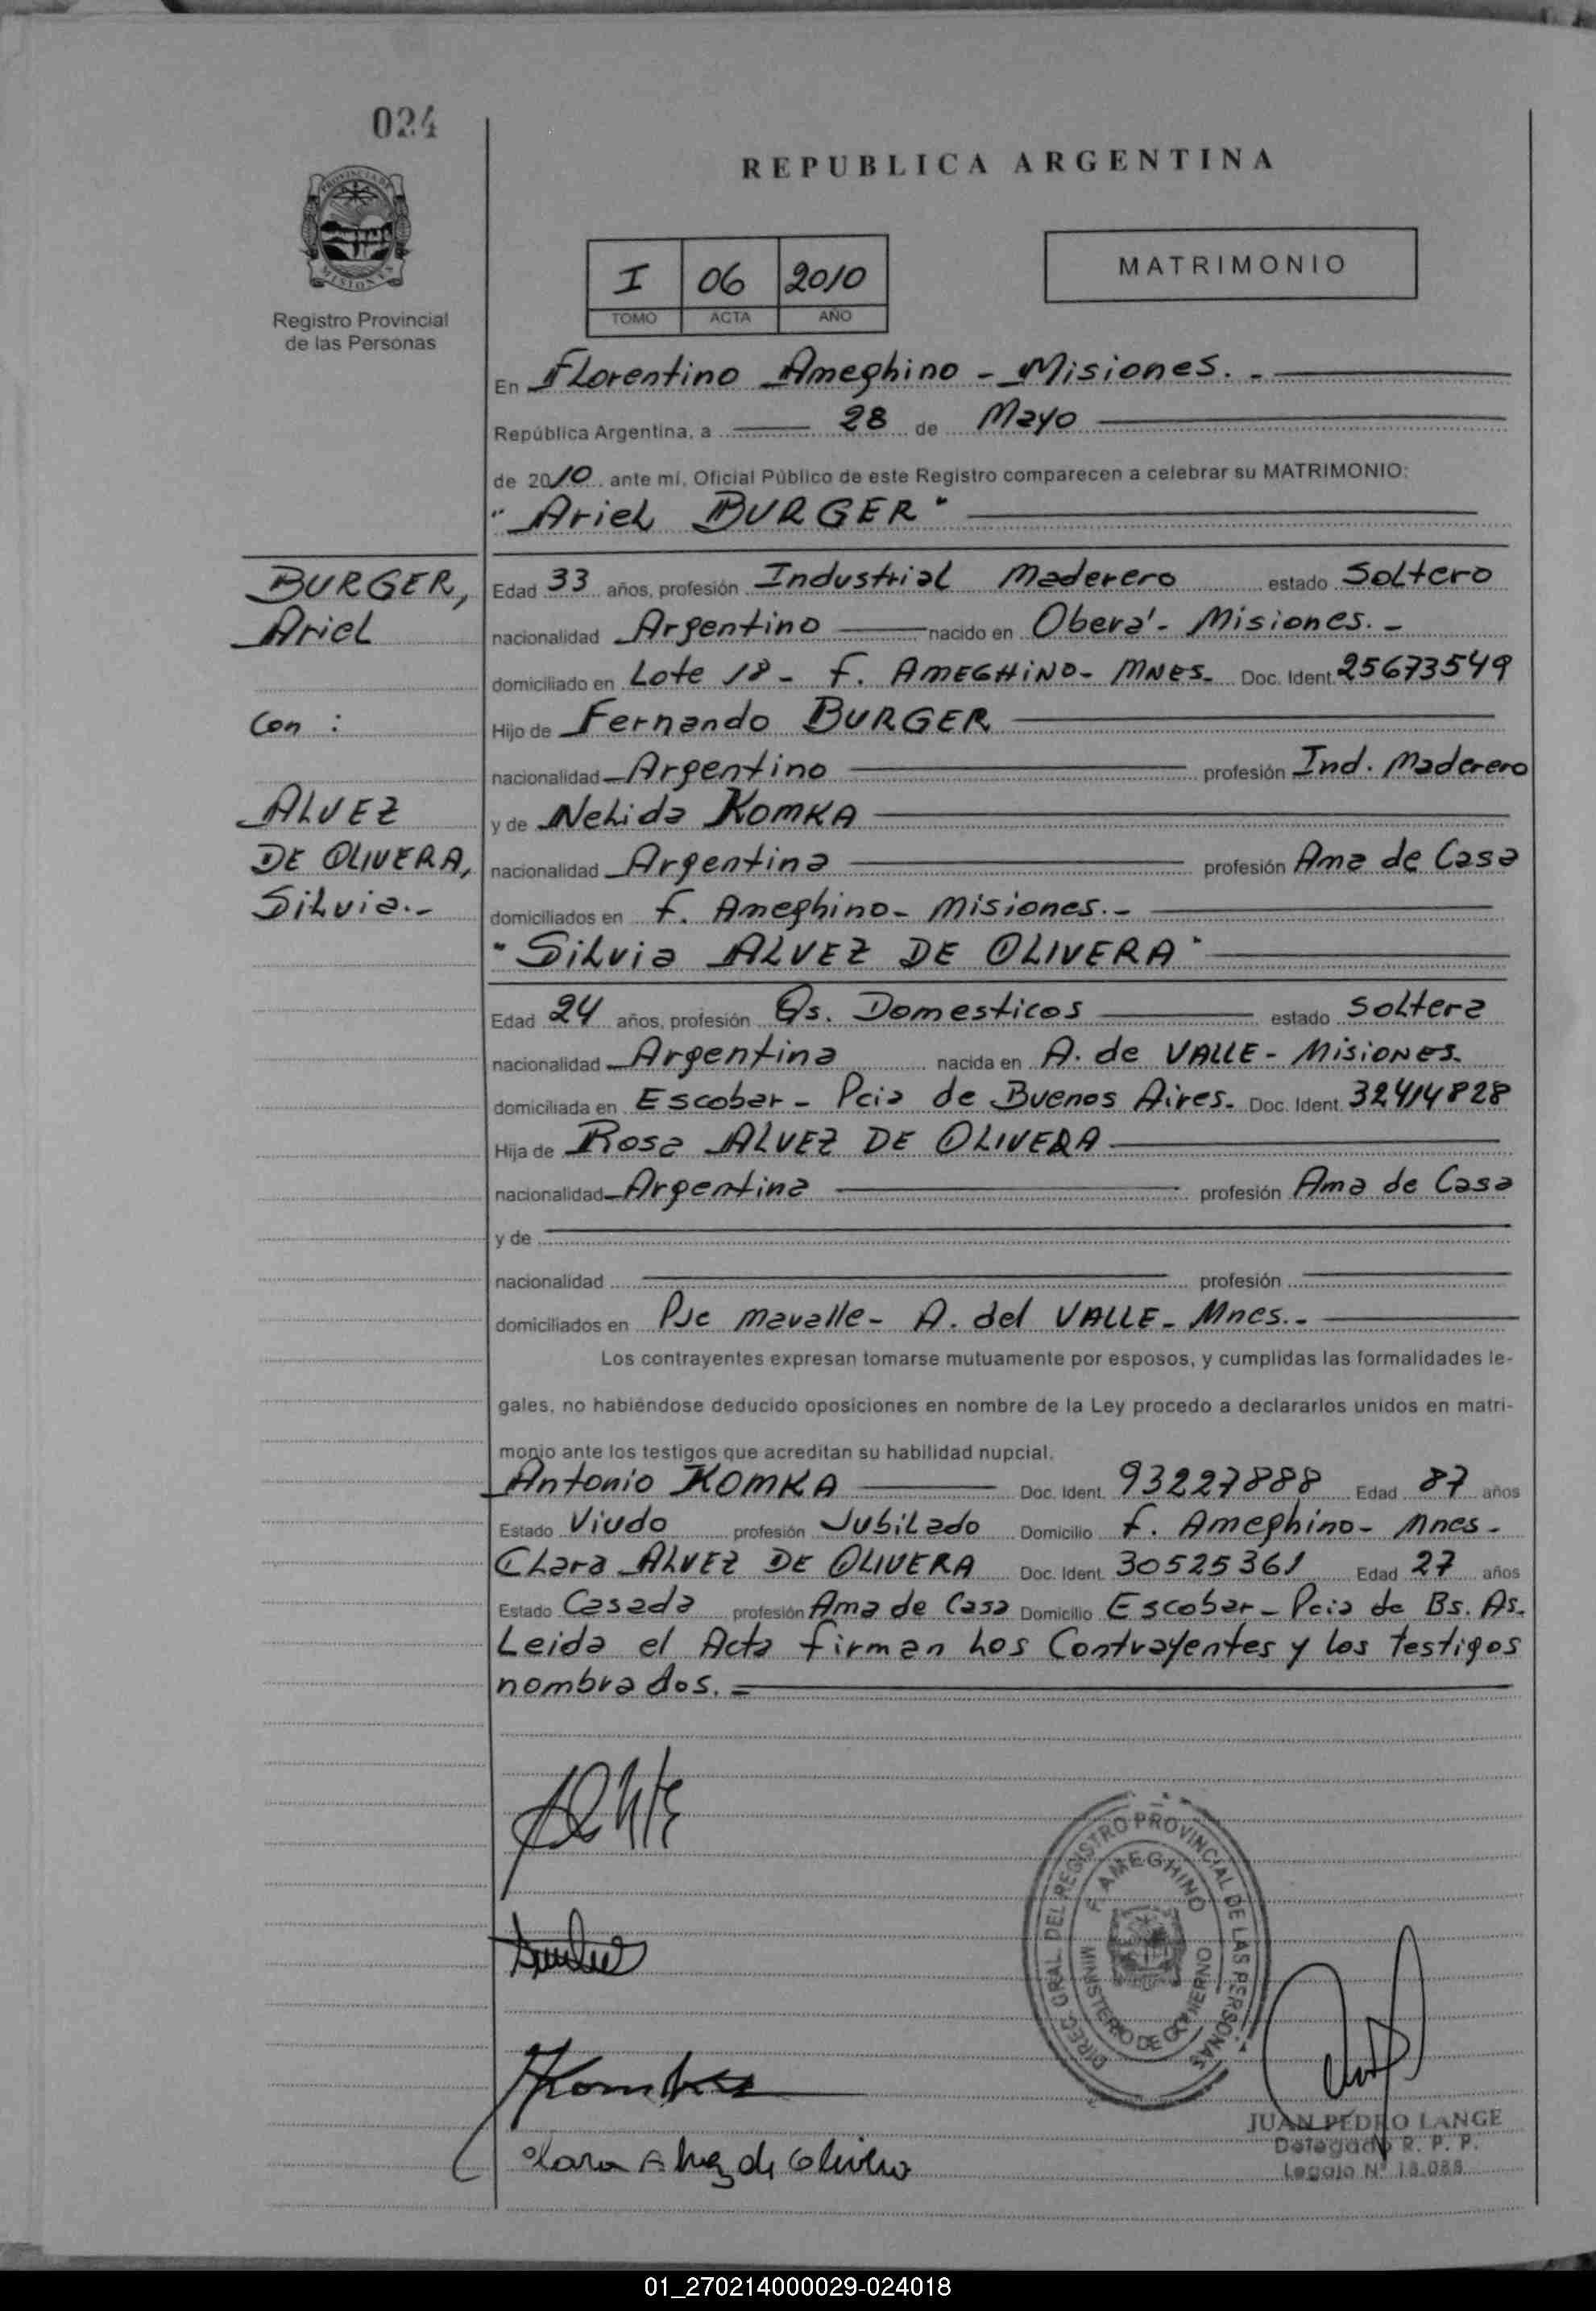 024
REPUBLICA ARGENTINA
PROVINCIA DE
MISIONES
Registro Provincial
de las Personas
I 06 2010
TOMO ACTA AÑO
MATRIMONIO
En Florentino Ameghino - Misiones. -
República Argentina, a 28 de Mayo
de 2010 ante mí, Oficial Público de este Registro comparecen a celebrar su MATRIMONIO:
"Ariel BURGER"
BURGER,
Ariel
Con :
ALVEZ
DE OLIVERA,
Silvia.-
Edad 33 años, profesión Industrial Maderero estado Soltero
nacionalidad Argentino nacido en Oberá - Misiones. -
domiciliado en Lote 18 - F. AMEGHINO - MNES. Doc. Ident. 25673549
Hijo de Fernando BURGER
nacionalidad Argentino profesión Ind. Maderero
y de Nelida KOMKA
nacionalidad Argentina profesión Ama de Casa
domiciliados en F. Ameghino - Misiones. -
"Silvia ALVEZ DE OLIVERA"
Edad 24 años, profesión Qs. Domesticos estado Soltera
nacionalidad Argentina nacida en A. de VALLE - MISIONES.
domiciliada en Escobar - Pcia de Buenos Aires. Doc. Ident. 32414828
Hija de Rosa ALVEZ DE OLIVERA
nacionalidad Argentina profesión Ama de Casa
y de
nacionalidad profesión
domiciliados en Pje Mavalle - A. del VALLE - Mnes. -
Los contrayentes expresan tomarse mutuamente por esposos, y cumplidas las formalidades le-
gales, no habiéndose deducido oposiciones en nombre de la Ley procedo a declararlos unidos en matri-
monio ante los testigos que acreditan su habilidad nupcial.
Antonio KOMKA Doc. Ident. 93227888 Edad 87 años
Estado Viudo profesión Jubilado Domicilio F. Ameghino - Mnes -
Clara ALVEZ DE OLIVERA Doc. Ident. 30525361 Edad 27 años
Estado Casada profesión Ama de Casa Domicilio Escobar - Pcia de Bs. As.
Leida el Acta firman los Contrayentes y los testigos
nombrados. =
DIREC. GRAL. DEL REGISTRO PROVINCIAL DE LAS PERSONAS
F. AMEGHINO
MINISTERIO DE GOBIERNO
AKomka
Clara Alvez de Olivera
JUAN PEDRO LANGE
Delegado R. P. P.
Legajo Nº 18.088
01_270214000029-024018